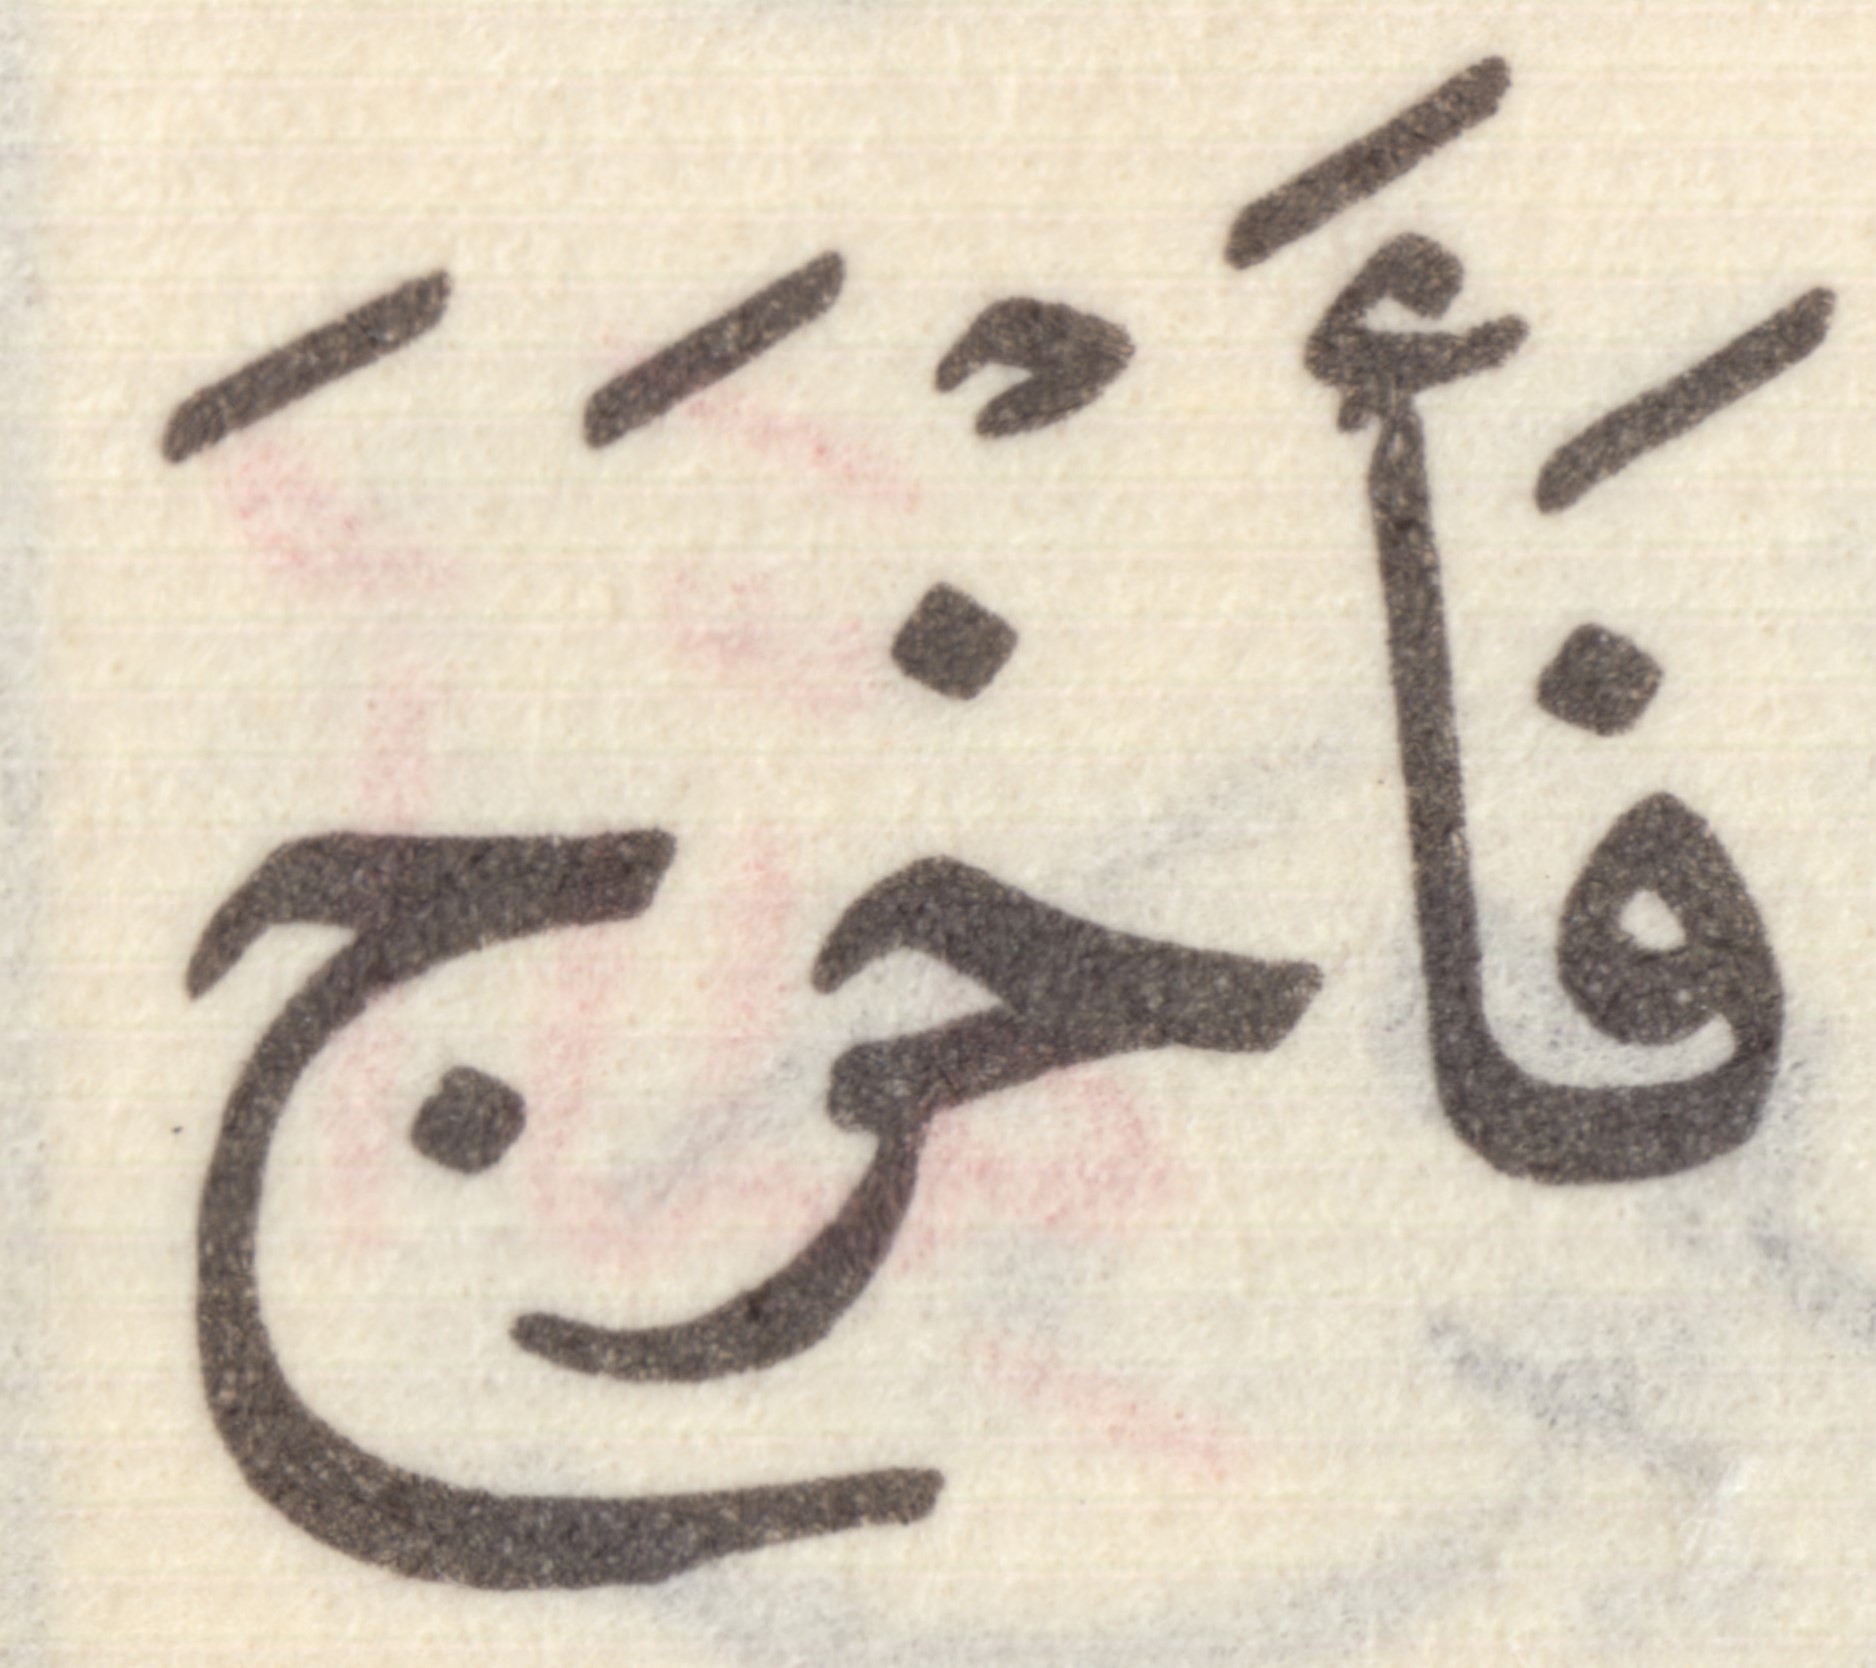 فَأَخْرَجَ